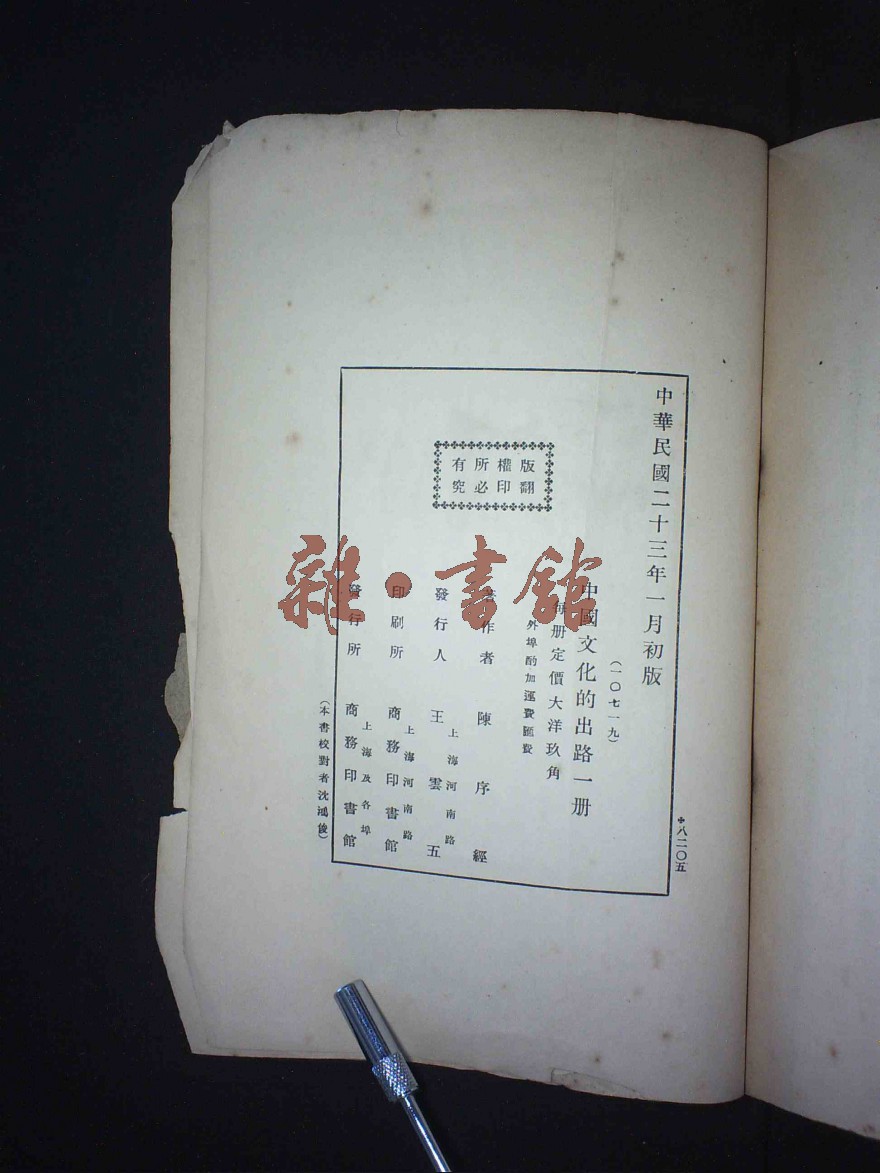 中華民國二十三年一月初版
(一〇七一九)
中國文化的出路一册
每册定價大洋玖角
外埠酌加運費匯費
版權所有
翻印必究
著作者 陳序經
上海河南路
發行人 王雲五
上海河南路
印刷所 商務印書館
上海及各埠
發行所 商務印書館
(本書校對者沈鴻俊)
八二〇五
雜·書館